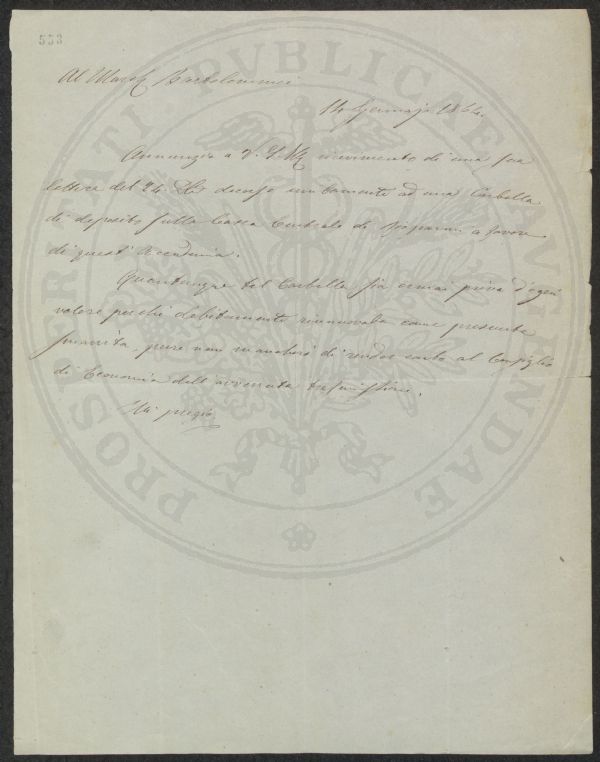 553
Al March Bartolommei
14 Gennajo 1864.
Annunzio a V. S. Ill ricevimento di una sua
lettera del 24. Xbr decorso unitamente ad una Cartella
di deposito sulla Cassa Centrale di Risparmi a favore
di quest' Accademia.
Quantunque tal Cartella sia ormai priva d'ogni
valore perché debitamente rinnovata come presunta
smarrita, pure non mancherò di render conto al Consiglio
di Economia dell' avvenuta trasmissione.
Mi pregio
PROSPERITATI PVBLICAE AVGENDAE